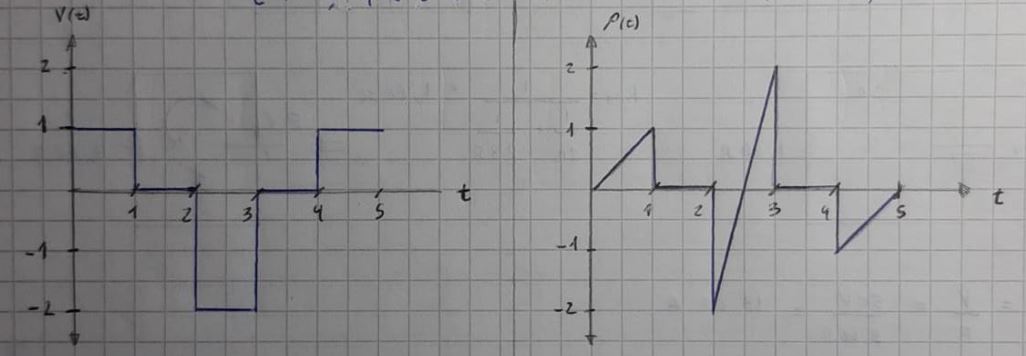 V(t)
2
1
-1
-2
1 2 3 4 5 t
P(t)
2
1
-1
-2
1 2 3 4 5 t